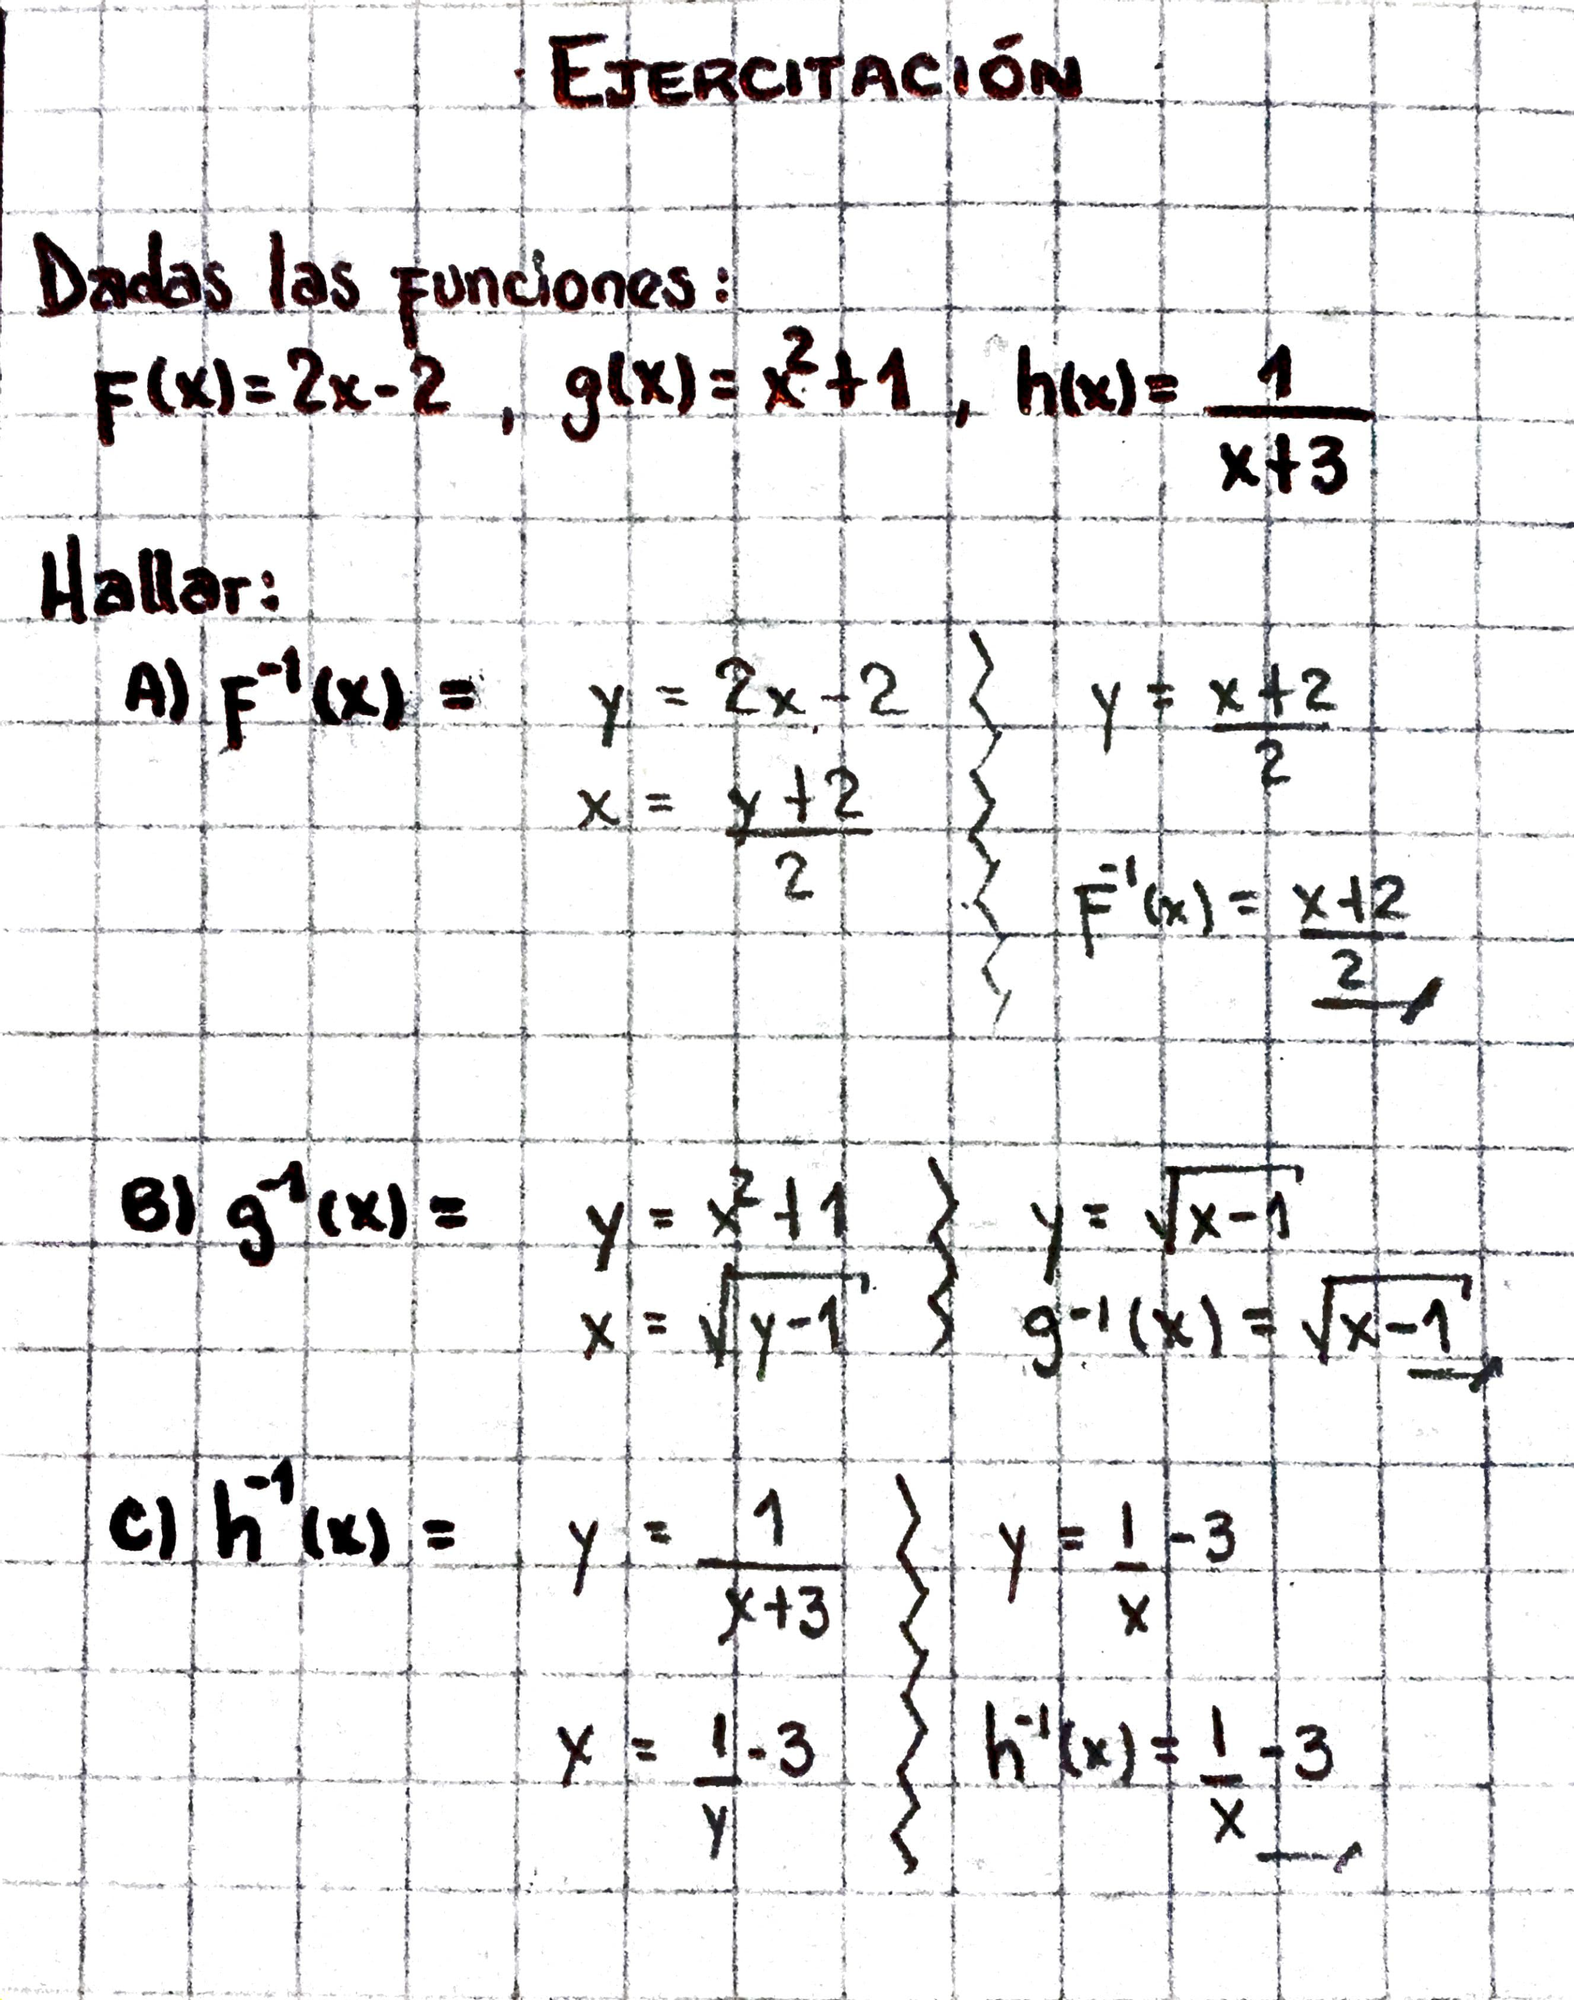 EJERCITACIÓN
Dadas las funciones:
F(x)=2x-2 , g(x)=x²+1 , h(x)= 1/(x+3)
Hallar:
A) F⁻¹(x) =
y = 2x-2
x = (y+2)/2
y = (x+2)/2
F⁻¹(x) = (x+2)/2
B) g⁻¹(x) =
y = x²+1
x = √(y-1)
y = √(x-1)
g⁻¹(x) = √(x-1)
C) h⁻¹(x) =
y = 1/(x+3)
x = 1/y -3
y = 1/x -3
h⁻¹(x) = 1/x -3